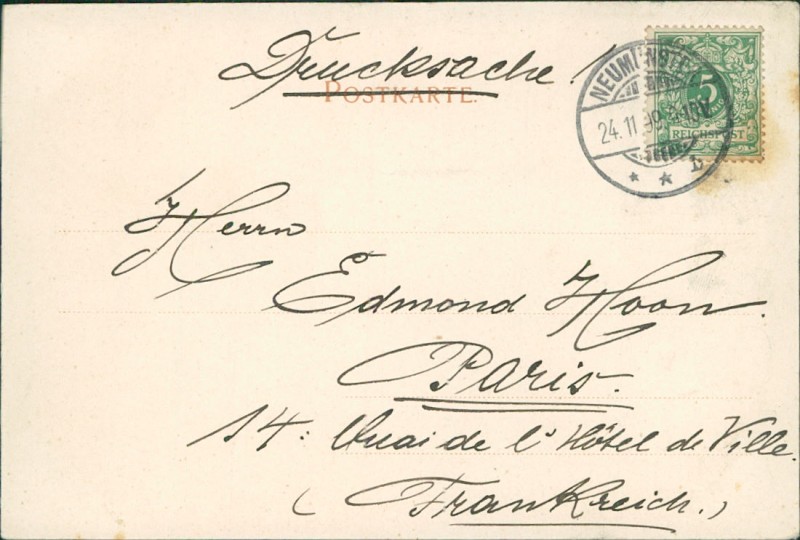 Drucksache!
POSTKARTE.
NEUMÜNSTER
24.11.99
5
REICHSPOST
b
Herrn
Edmond Hoon.
Paris.
14: Quai de l'Hôtel de Ville.
(Frankreich.)